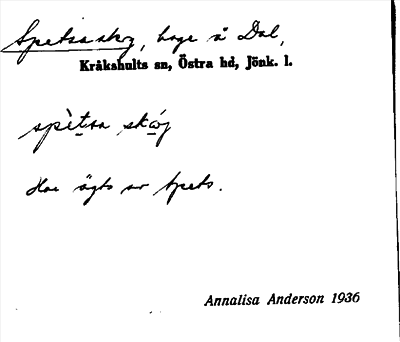 Spetsaskog, hage å Dal,
Kråkshults sn, Östra hd, Jönk. l.
spètsa skóg
Har ägts av Spets.
Annalisa Anderson 1936